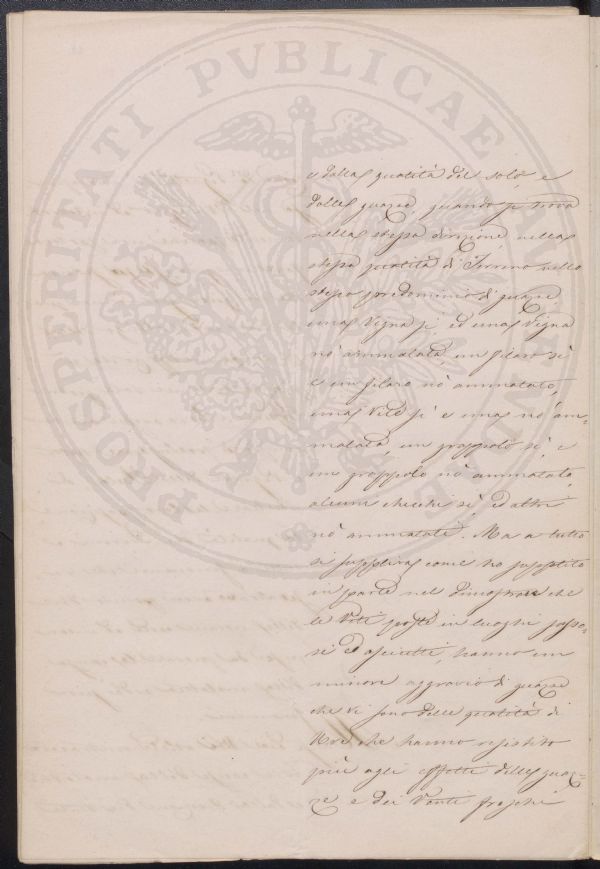 PROSPERITATI PVBLICAE
e dalla qualità del solo, e
dalle guazze, quando si trova
nella stessa direzione, nella
stessa qualità di Terreno nello
stesso predominio di guazze
una Vigna sì, ed una Vigna
nò ammalata, un filaro sì
e un filaro nò ammalato,
una Vite sì e una nò am=
malata, un grappolo sì, e
un grappolo nò ammalato,
alcuni chicchi sì, ed altri
nò ammalati. Ma a tutto
si supplirà come ho supplito
in parte nel dimostrare che
le Viti poste in luoghi
ed asciutti, hanno un
minore aggravio di guazze
che vi sono delle qualità di
Uve che hanno resistito
più agli effetti delle guaz=
ze e dei Venti freschi